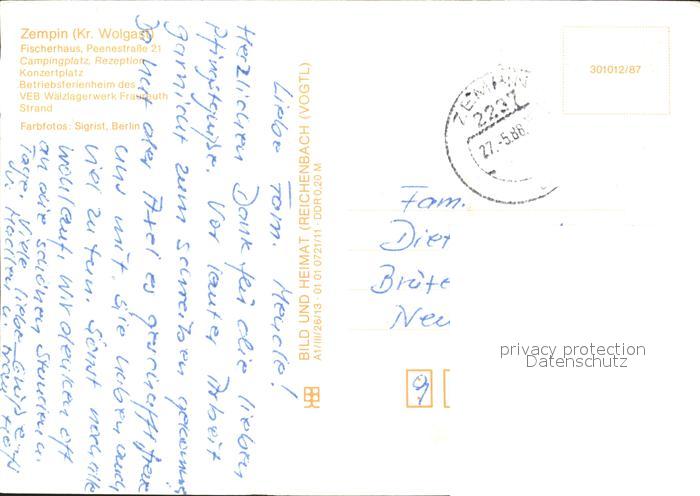 Zempin (Kr. Wolgast)
Fischerhaus, Peenestraße 21
Campingplatz, Rezeption
Konzertplatz
Betriebsferienheim des
VEB Wälzlagerwerk Fraureuth
Strand
Farbfotos: Sigrist, Berlin
Liebe Fam.
Herzlichen Dank für die lieben
Pfingstgrüße. Vor lauter Arbeit
garnicht zum schreiben gekommen
Da hat aber Axel es geschafft
uns mit. Sie haben auch
viel zu tun. Sonst noch alles
wohlauf, wir denken oft
an die schönen Stunden u.
Tage. Viele liebe Grüße
BILD UND HEIMAT (REICHENBACH (VOGTL)
A1/III/26/13 · 01 01 0721/11 · DDR 0,20 M
301012/87
ZEMPIN
2237
27.-5.88
Fam.
Diet
Brüte
Neu
9
privacy protection
Datenschutz